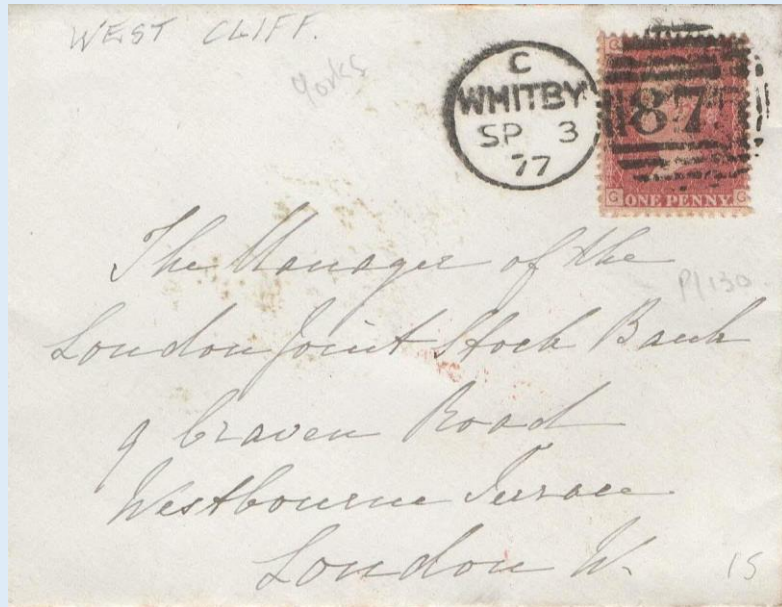 WEST CLIFF.
Yorks
C
WHITBY
SP 3
77
87
G G
ONE PENNY
The Manager of the
Pl 130
London Joint Stock Bank
9 Craven Road
Westbourne Terrace
London W.
15